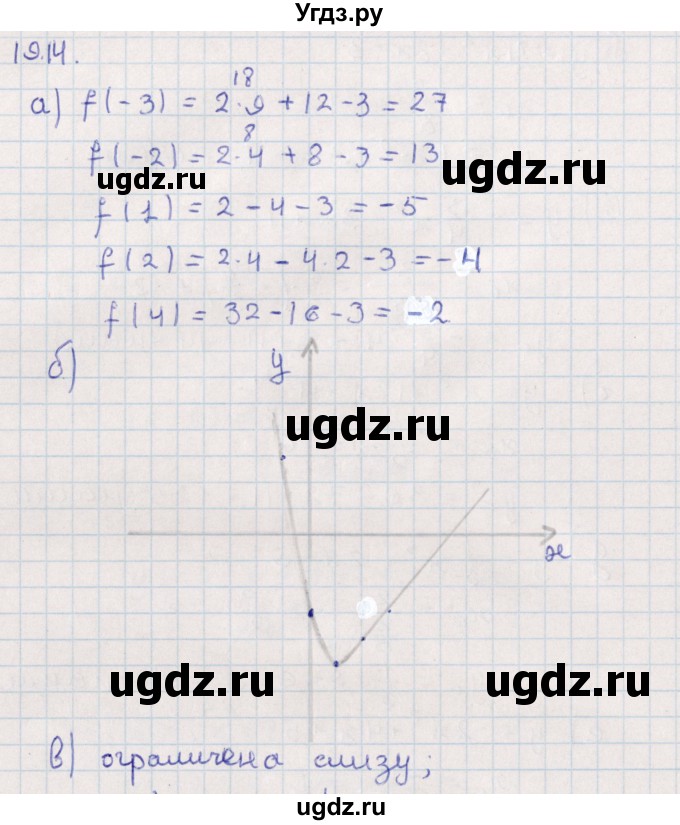 Угдз.ру
19.14.
18
а) f(-3) = 2·9 + 12 - 3 = 27
8
f(-2) = 2·4 + 8 - 3 = 13
ugdz.ru
ugdz.ru
f(1) = 2 - 4 - 3 = -5
f(2) = 2·4 - 4·2 - 3 = -4
f(4) = 32 - 16 - 3 = -2
б) y
ugdz.ru
x
ugdz.ru
ugdz.ru
в) ограничена снизу;
ugdz.ru